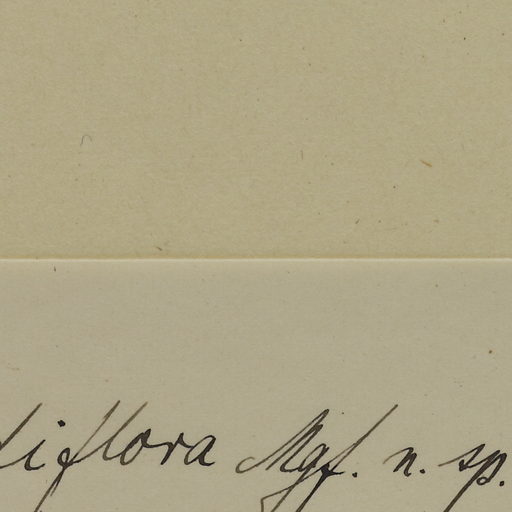 iflora Mgf. n. sp.